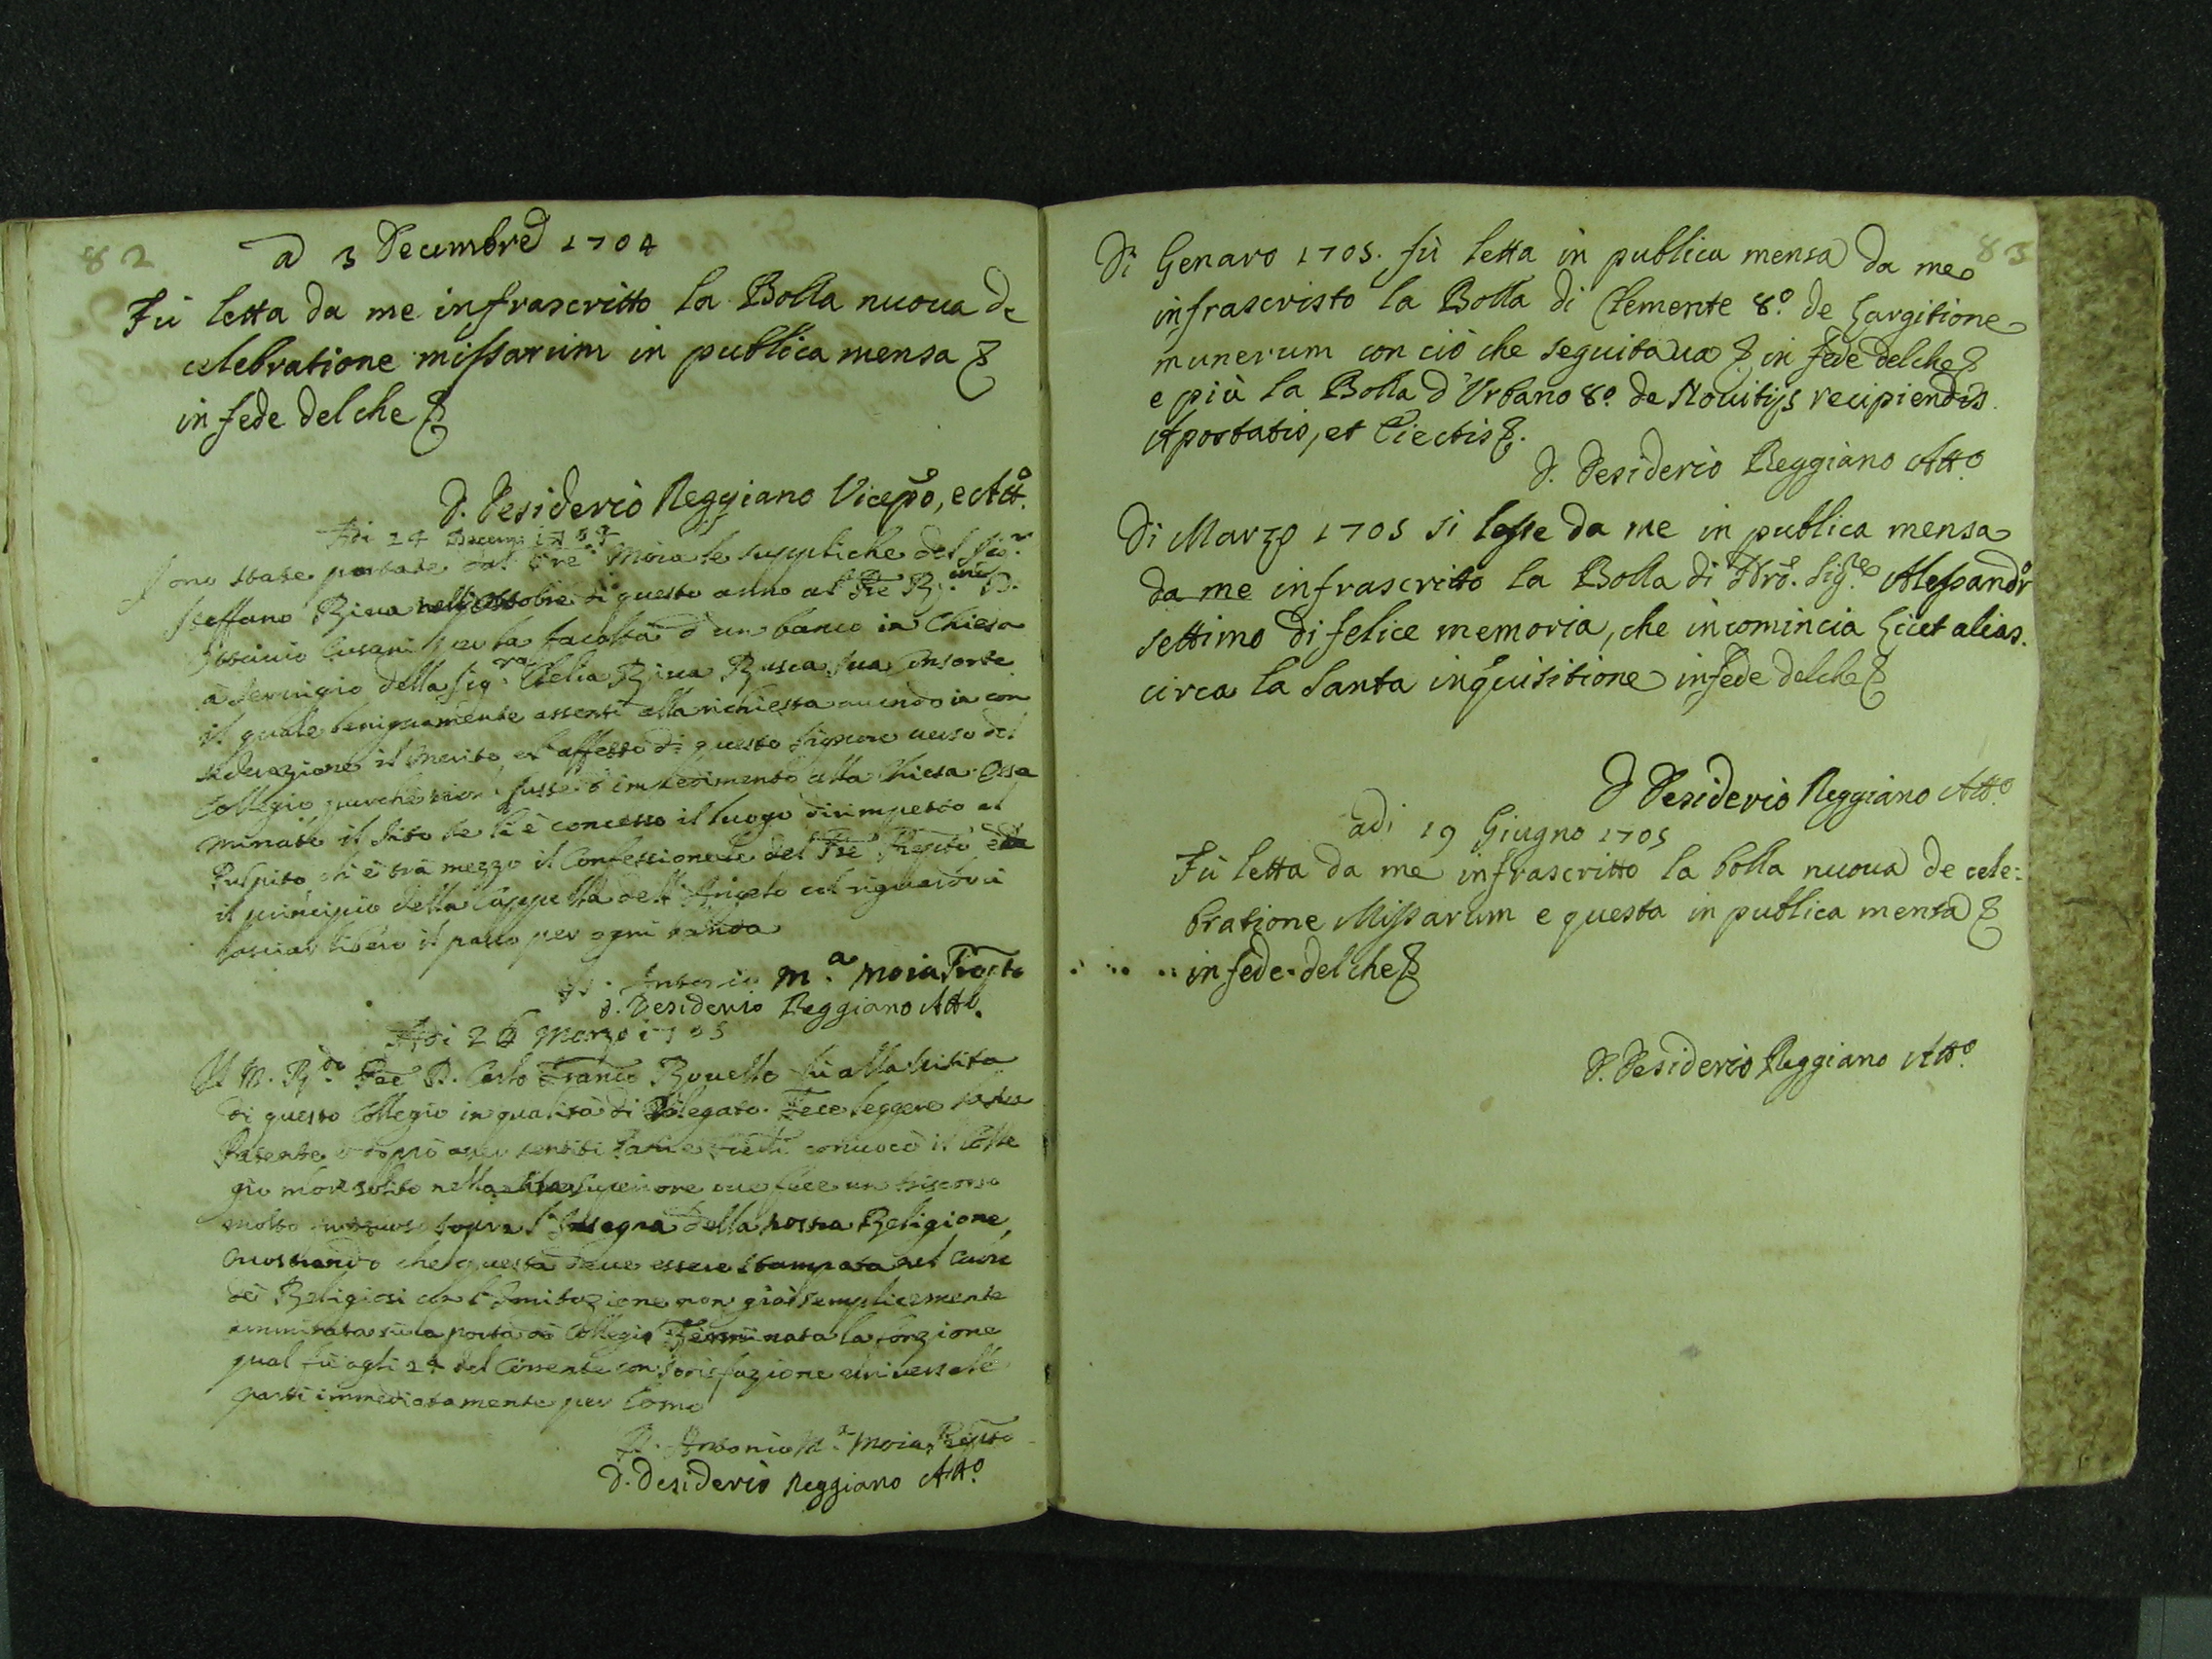 82
a 3 Decembre 1704
Fù letta da me infrascritto la Bolla nuova de
celebratione missarum in publica mensa &
in fede del che &
D. Desiderio Reggiano Vicepo, e Atto.
Adi 24 Decemb 1704
Sono state portate dal Pre Moia le suppliche del Sior
Steffano Riva nell'Ottobre di questo anno al Pre Rmo D.
Cusani per la facoltà d'un banco in Chiesa
à servigio della Sigra Clelia Riva Busca sua Consorte
il quale benignamente assentì alla richiesta avendo in con
siderazione il merito, e l'affetto di questo Signore verso del
Collegio purche non fusse d'impedimento alla Chiesa. Esa
minato il sito se li è concesso il luogo dirimpetto al
Pulpito ch'è trà mezzo il Confessionale del Pre Preposto e
il principio della Cappella dell'Angelo col riguardo di
lasciar libero il passo per ogni banda
D. Antonio Ma Moia Preposto
D. Desiderio Reggiano Atto.
Adi 26 Marzo 1705
Il M. Rdo Pre D. Carlo Franco Rovello fù alla visita
di questo Collegio in qualità di Delegato. Fece leggere la sua
Patente e doppo aver sentiti Padri e Fratelli convocò il Colle
gio more solito nella superiore ove fece un discorso
molto sopra l'Insegna della nostra Religione,
mostrando che questa deve essere stampata nel Cuore
dei Religiosi con l'Imitazione non già semplicemente
sù la porta dei Collegi. Terminata la fonzione
qual fù agli 24 del Corrente con sodisfazione universale
partì immediatamente per Como
D. Antonio Ma Moia Preposto
D. Desiderio Reggiano Atto.
83
Di Genaro 1705. fù letta in publica mensa da me
infrascristo la Bolla di Clemente 8o. de Largitione
munerum con ciò che seguitava & in fede del che &
e più la Bolla d'Urbano 8o. de Novitijs recipiendis
Apostatis, et Eiectis &.
D. Desiderio Reggiano Atto
Di Marzo 1705 si lesse da me in publica mensa
da me infrascritto la Bolla di Nro. Sigre Alessandr
settimo di felice memoria, che incomincia Licet alias.
circa la Santa inquisitione in fede del che &
D Desiderio Reggiano Atto.
adi 19 Giugno 1705
Fù letta da me infrascritto la bolla nuova de cele:
bratione Missarum e questa in publica mensa &
in fede del che &
D. Desiderio Reggiano Atto.